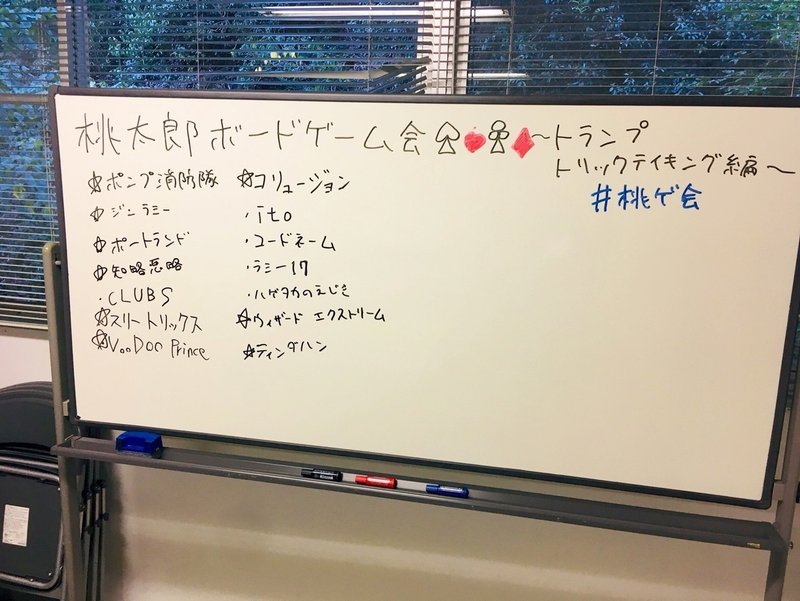 桃太郎ボードゲーム会♤♥♧♦～トランプ
トリックテイキング編～
#桃ゲ会
☆ポンプ消防隊
☆ジンラミー
☆ポートランド
☆知略悪略
・CLUBS
☆スリートリックス
☆VooDoo Prince
☆コリュージョン
・ito
・コードネーム
・ラミー17
・ハゲタカのえじき
☆ウィザード エクストリーム
☆ティンダハン